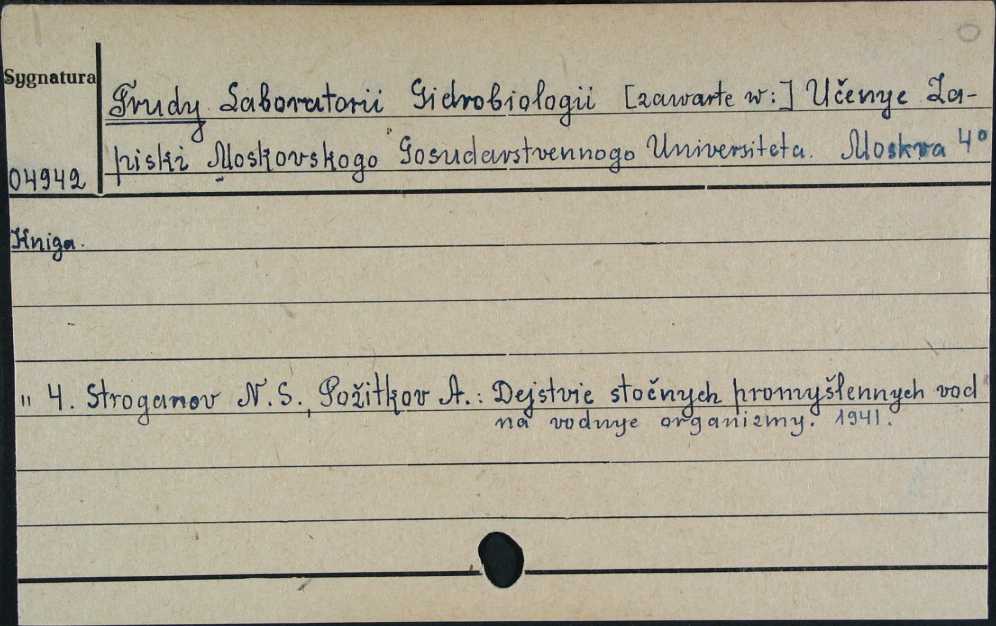 Sygnatura
Trudy Laboratorii Gidrobiologii [zawarte w:] Učenye Za-
piski Moskovskogo Gosudarstvennogo Universiteta. Moskva 4°
04942
Kniga.
" 4. Stroganov N. S., Požitkov A.: Dejstvie stočnych promyšlennych vod
na vodnye organizmy. 1941.